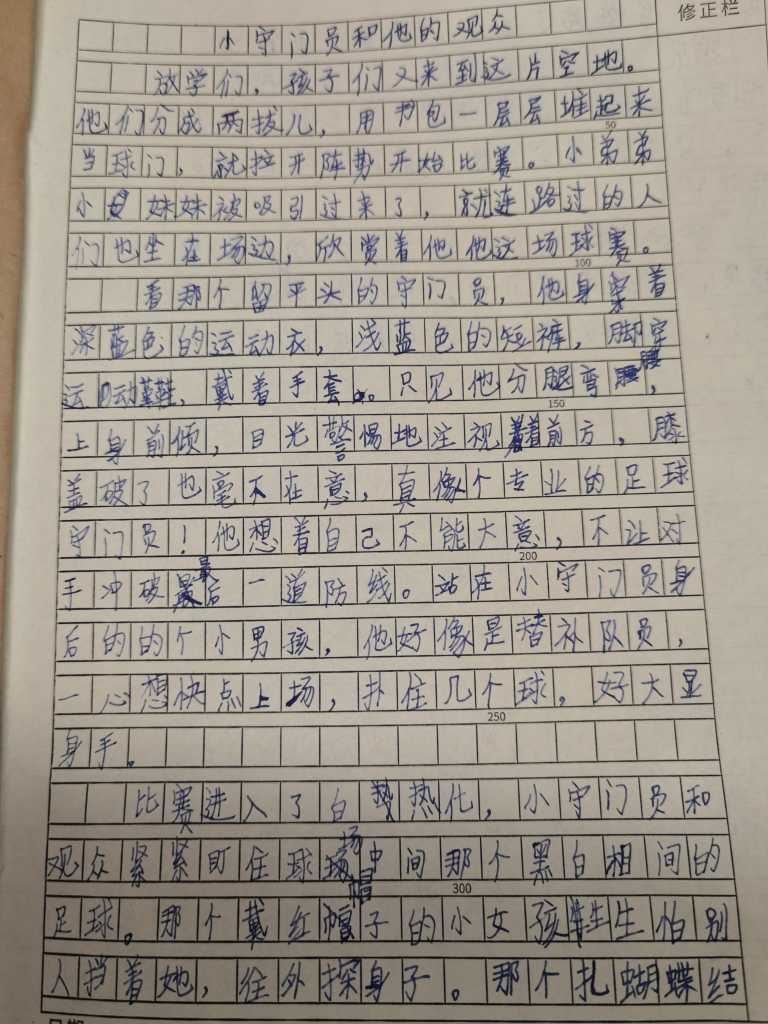 修正栏
小守门员和他的观众
放学们，孩子们又来到这片空地。
他们分成两拔儿，用书包一层层堆起来
50
当球门，就拉开阵势开始比赛。小弟弟
小妹妹被吸引过来了，就连路过的人
们也坐在场边，欣赏着他他这场球赛。
100
看那个留平头的守门员，他身穿着
深蓝色的运动衣，浅蓝色的短裤，脚穿
运动鞋，戴着手套。只见他分腿弯腰，
150
上身前倾，目光警惕地注视着前方，膝
盖破了也毫不在意，真像个专业的足球
守门员！他想着自己不能大意，不让对
200
手冲破最后一道防线。站在小守门员身
后的的个小男孩，他好像是替补队员，
一心想快点上场，扑住几个球，好大显
250
身手。
比赛进入了白热化，小守门员和
观众紧紧盯住球场中间那个黑白相间的
300
足球。那个戴红帽子的小女孩生生怕别
人挡着她，往外探身子。那个扎蝴蝶结